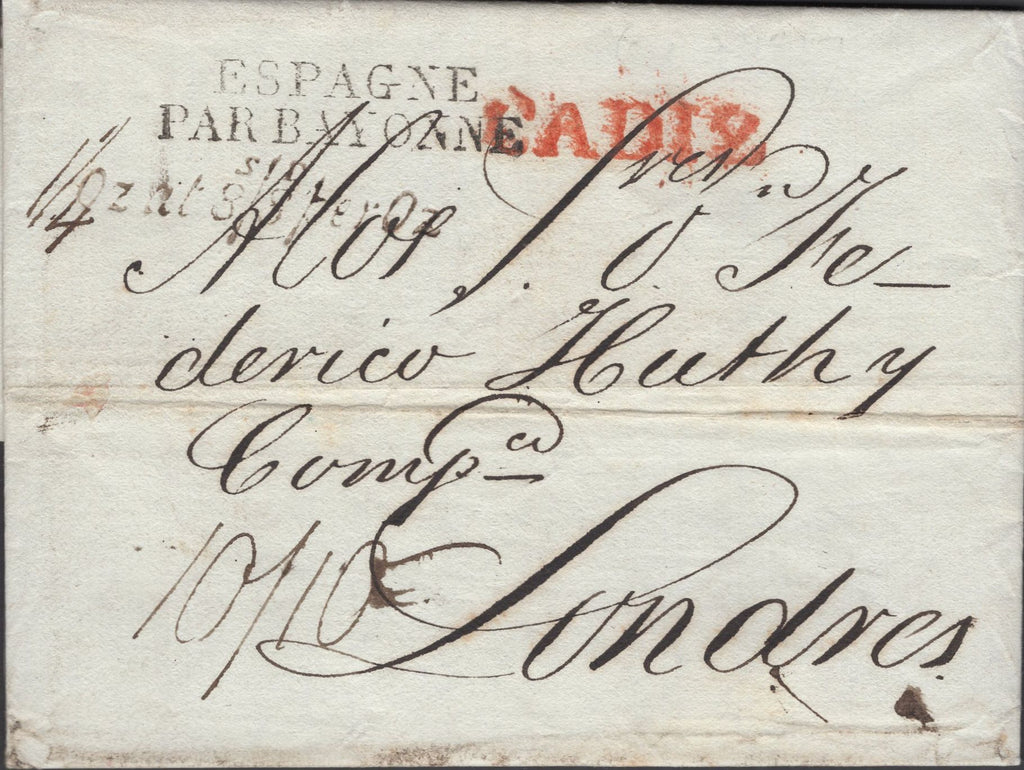 ESPAGNE
PAR BAYONNE
CADIZ
1 1/4 Oz at 8/8 per Oz
A los S.res D.n Fe-
derico Huth y
Comp.a
10/10
Londres